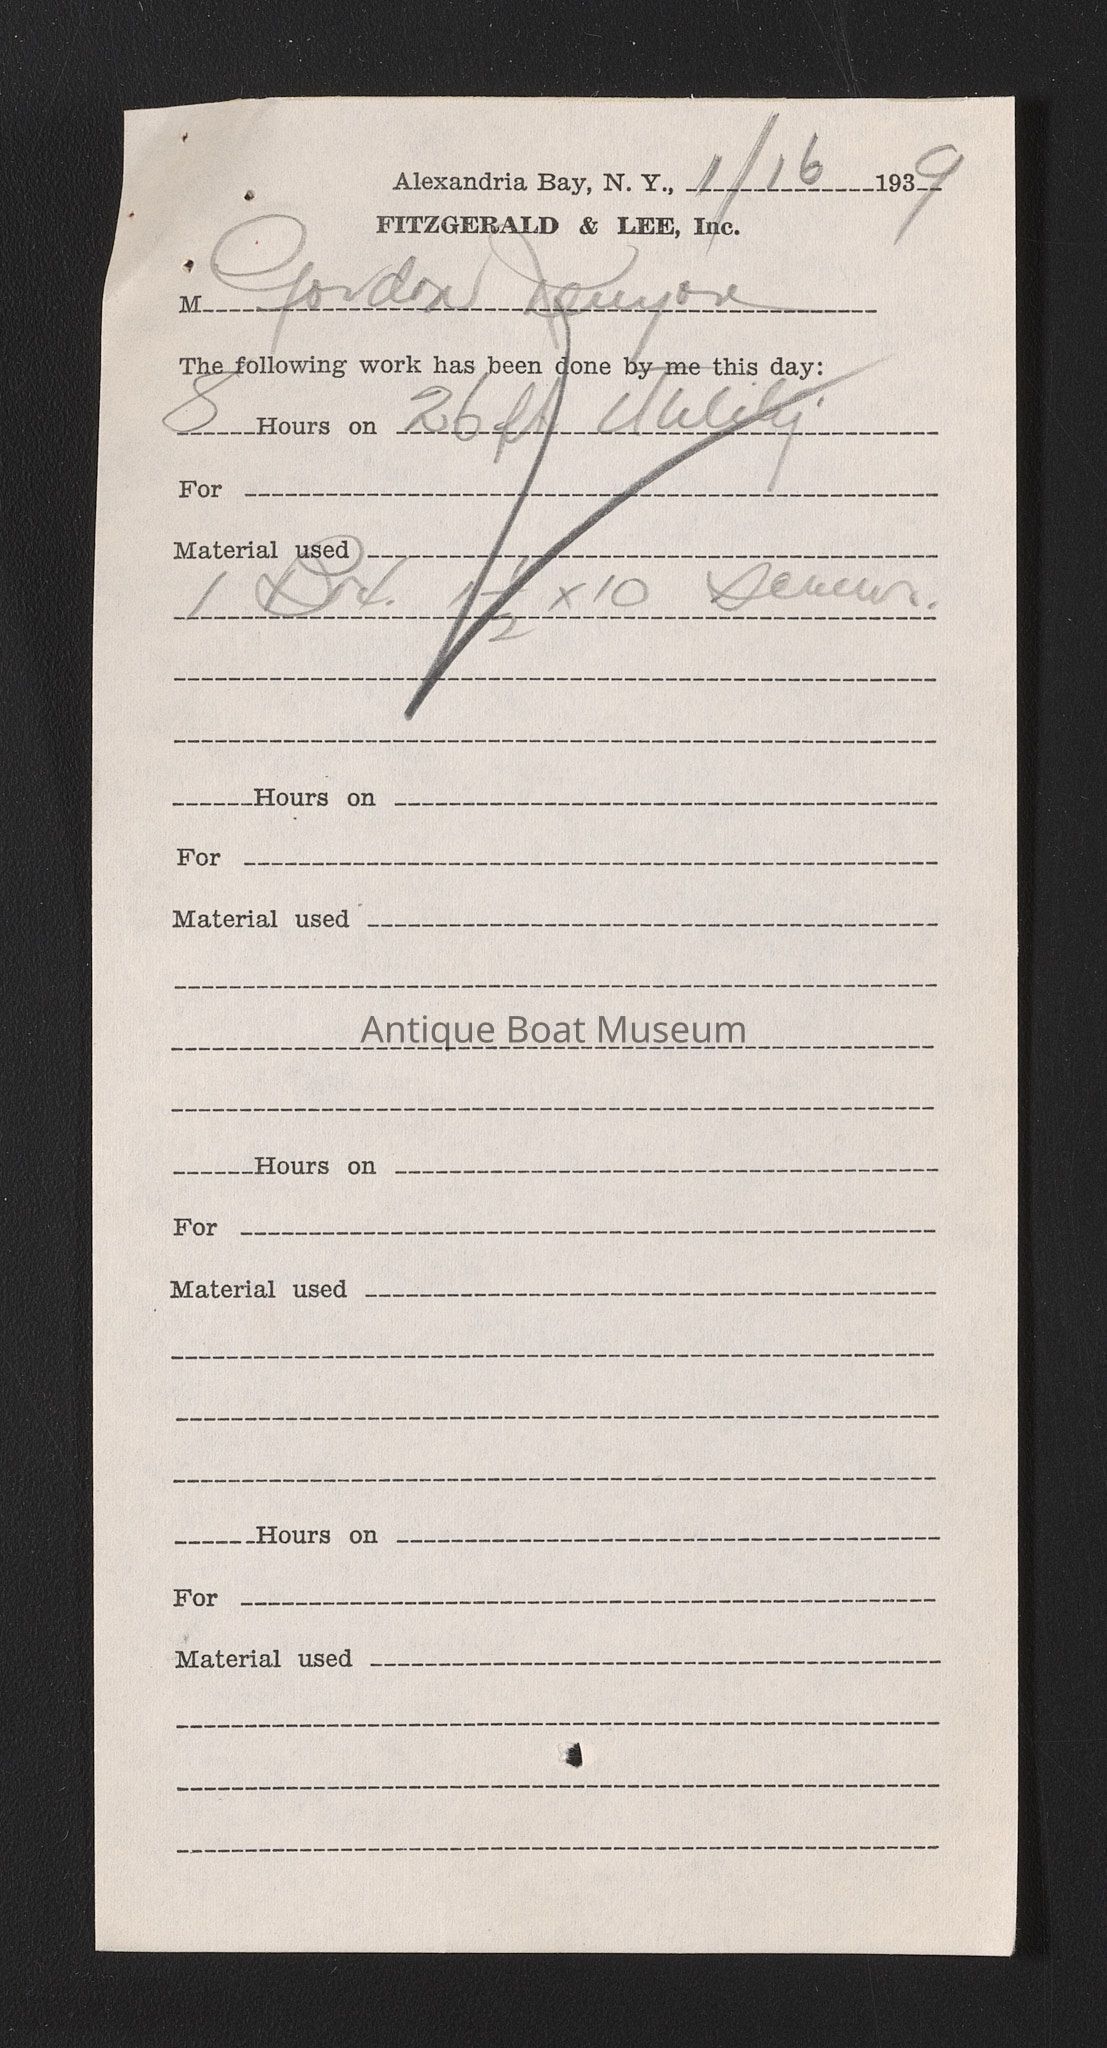 Alexandria Bay, N. Y., 1/16 1939
FITZGERALD & LEE, Inc.
M Gordon Kenyon
The following work has been done by me this day:
8 Hours on 26 ft Utility
For
Material used
1 Box 1 1/2 x 10
Hours on
For
Material used
Antique Boat Museum
Hours on
For
Material used
Hours on
For
Material used